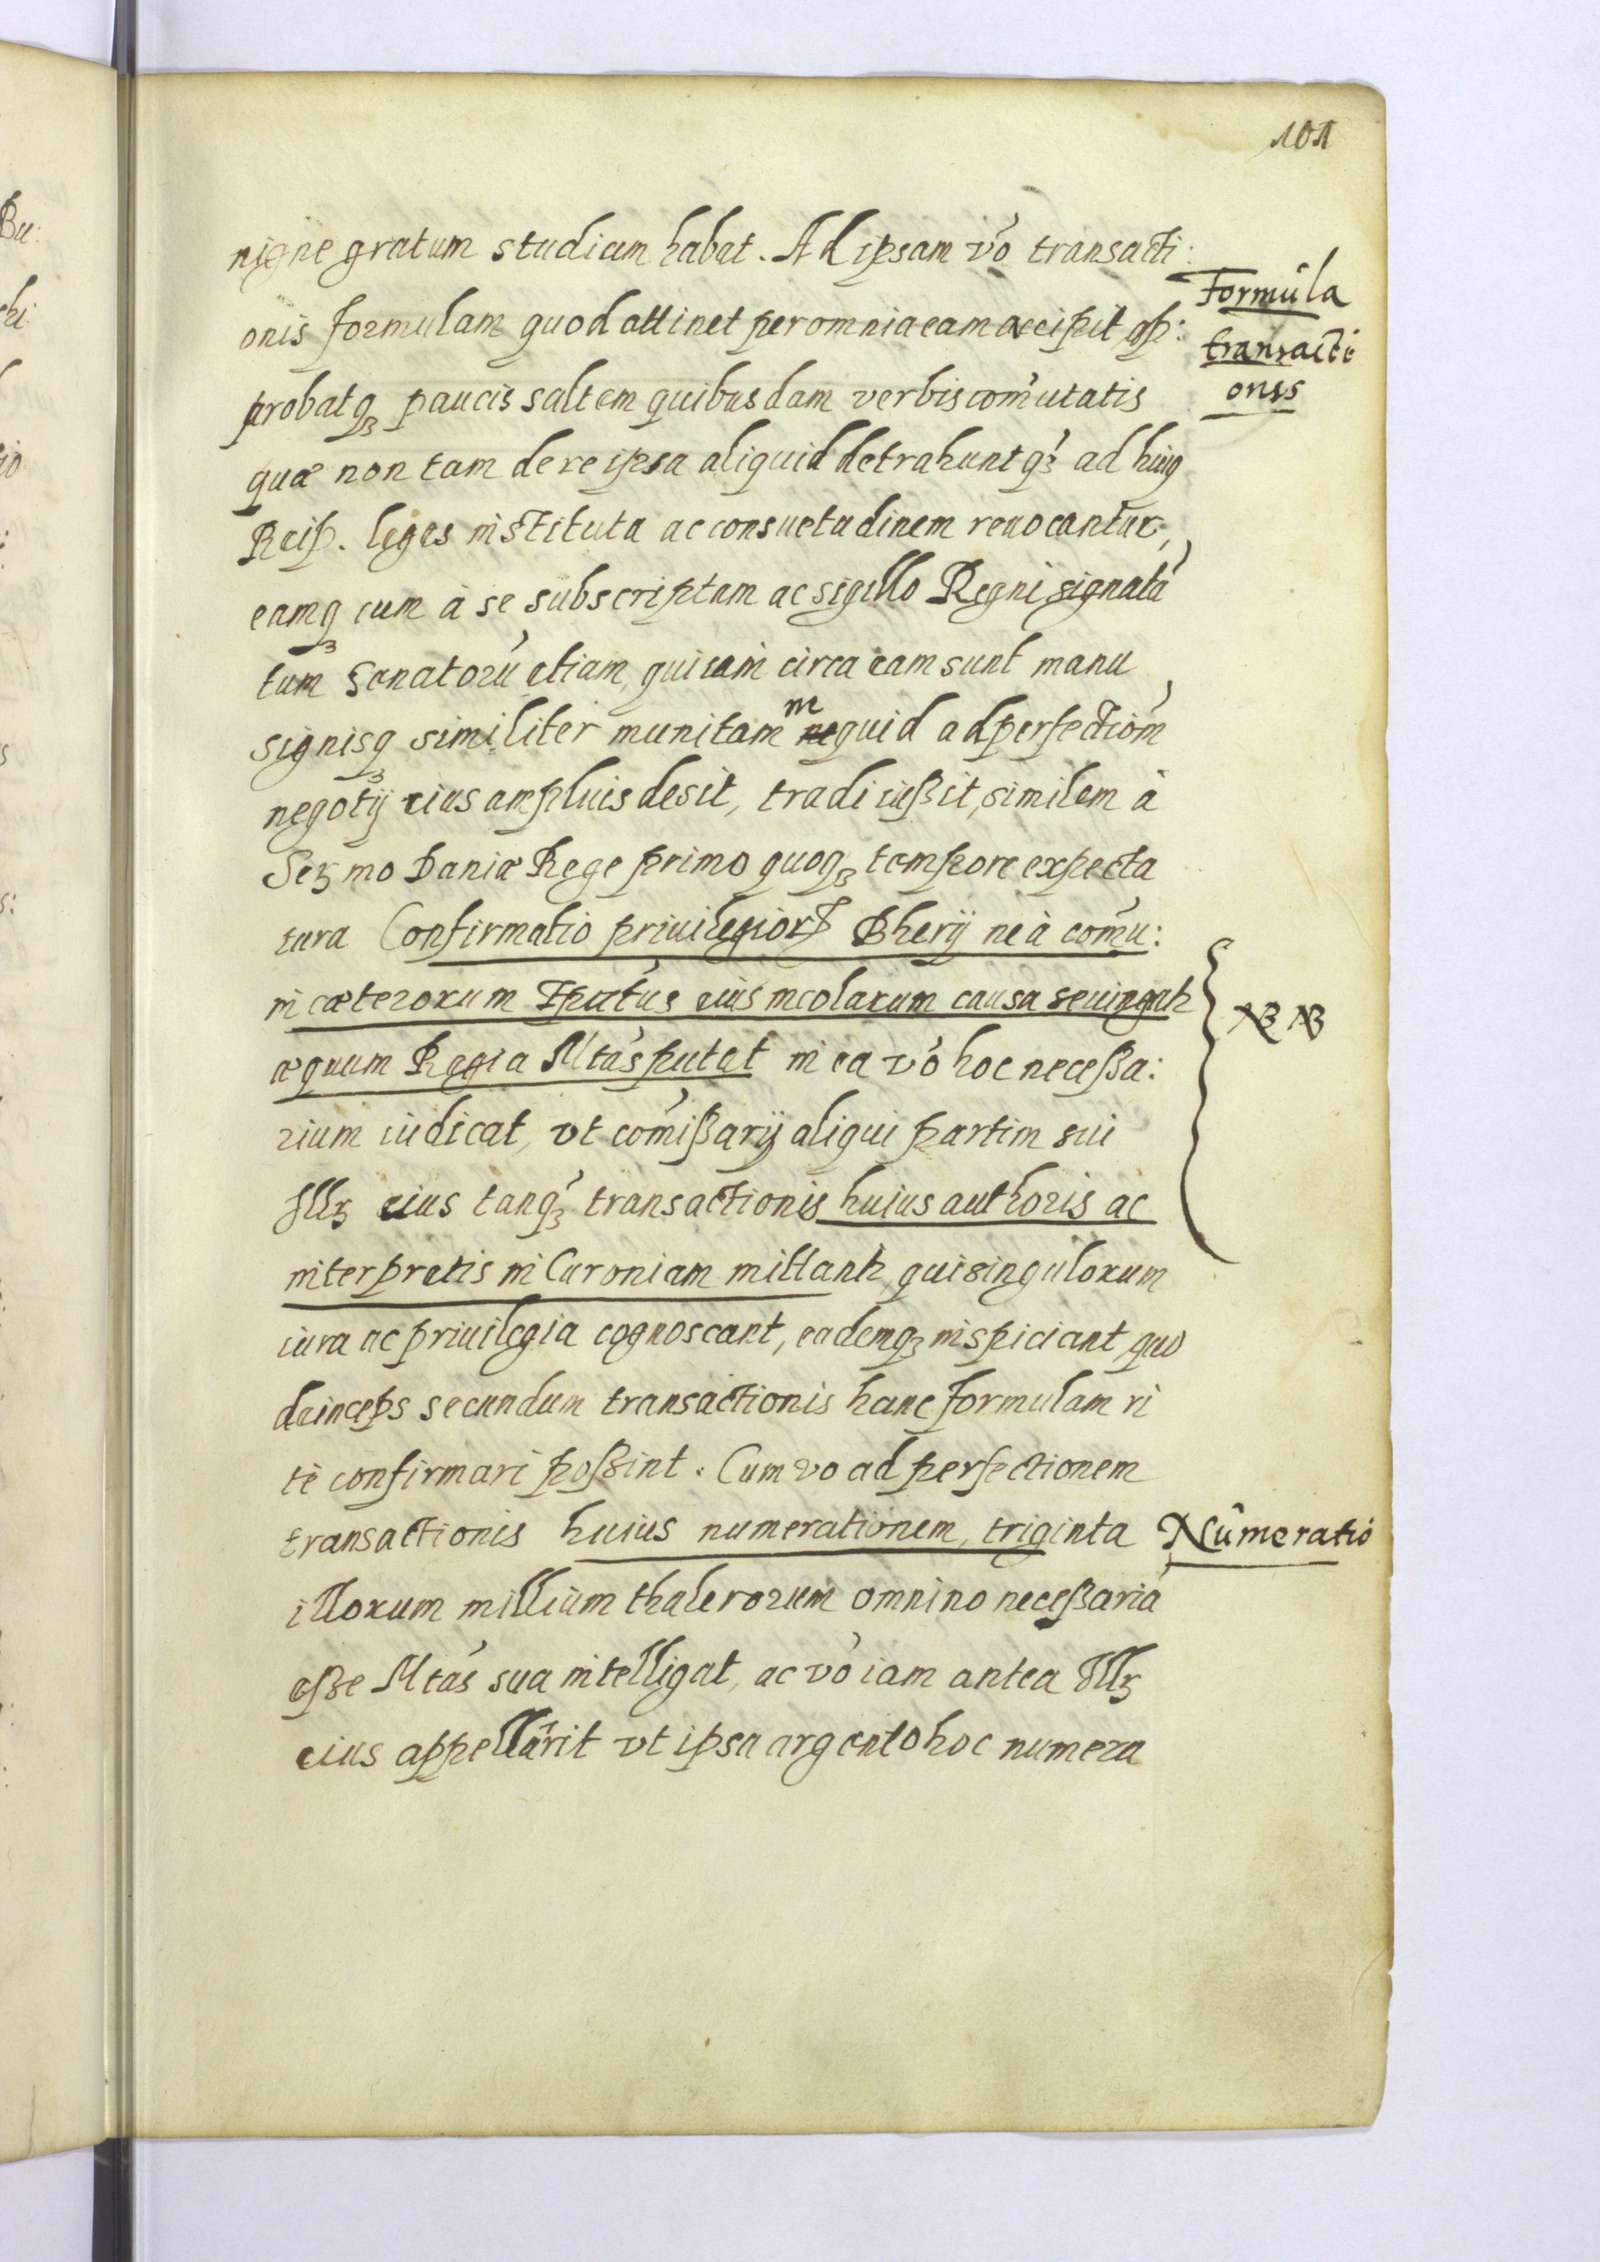 101
nigne gratum studium habat. Ad ipsam vó transacti:
Formúla
onis formulam quod attinet per omnia eam accipit ap:
transacti
probatq3 paucis saltem quibusdam verbis com̃utatis
onis
quæ non tam de re ipsa aliquid detrahunt q3́ ad huiq
Reip. leges instituta ac consuetudinem reuocantur,
eamq3 cum à se subscriptam ac sigillo Regni signatá
tum Senatorú etiam, qui iam circa eam sunt manu
signisq3 similiter munitam nequid ad perfectióm
negotij eius ampluis desit, tradi iußit, similem à
Se3mo Daniæ Rege primo quoq3 tempore expecta
tura Confirmatio priuilegior Ptherij ne à com̃u:
ni cæterorum eius incolarum causa seiungatr
æquum Regia Mtás putat in ea vó hoc neceßa:
rium iudicat, vt com̃ißarij aliqui partim sui
Ill3 eius tanq3́ transactionis huius authoris ac
interpretis in Curoniam mittantr, qui singulorum
iura ac priuilegia cognoscant, eademq3 inspiciant quo
deinceps secundum transactionis hanc formulam ri
tè confirmari poßint. Cum vo ad perfectionem
transactionis huius numerationem, triginta
Númeratio
illorum millium thalerorum omnino neceßariá
eße Mtás sua intelligat, ac vó iam antea Ill3
eius appellarit vt ipsa argento hoc numera
NB NB